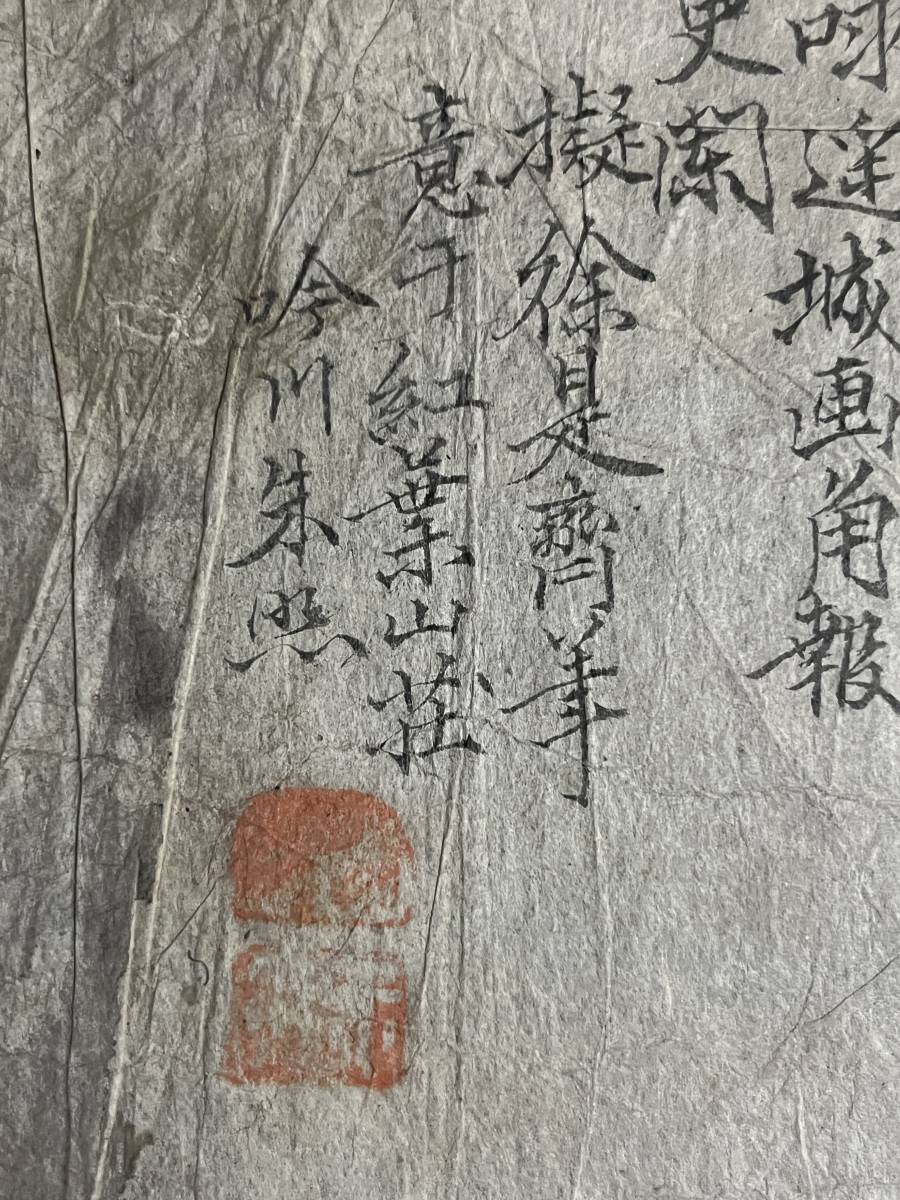 呼逢城画角報
更闌
擬徐是齋筆
意于紅葉山莊
吟川朱照